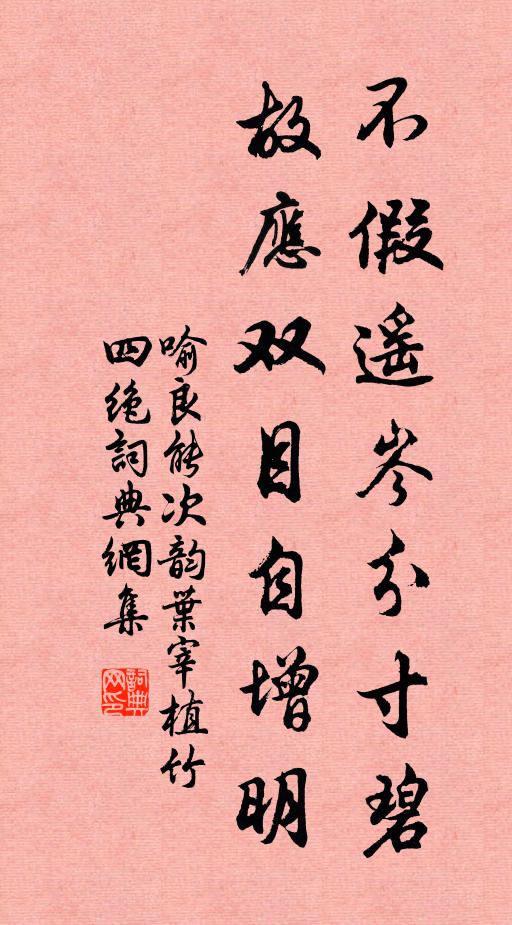 不假遥岑分寸碧
故應双目自增明
喻良能次韵葉宰植竹
四绝詞典網集
詞典网印